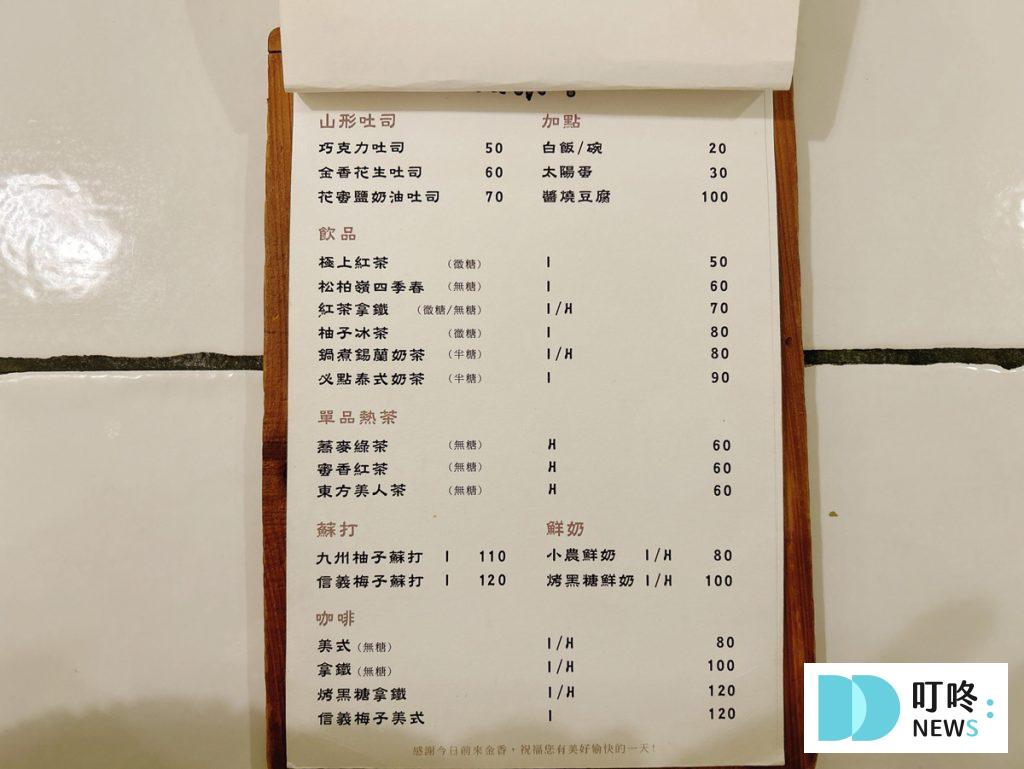 山形吐司
巧克力吐司 50
金香花生吐司 60
花蜜鹽奶油吐司 70
加點
白飯/碗 20
太陽蛋 30
醬燒豆腐 100
飲品
極上紅茶 (微糖) I 50
松柏嶺四季春 (無糖) I 60
紅茶拿鐵 (微糖/無糖) I/H 70
柚子冰茶 (微糖) I 80
鍋煮錫蘭奶茶 (半糖) I/H 80
必點泰式奶茶 (半糖) I 90
單品熱茶
蕎麥綠茶 (無糖) H 60
蜜香紅茶 (無糖) H 60
東方美人茶 (無糖) H 60
蘇打
九州柚子蘇打 I 110
信義梅子蘇打 I 120
鮮奶
小農鮮奶 I/H 80
烤黑糖鮮奶 I/H 100
咖啡
美式 (無糖) I/H 80
拿鐵 (無糖) I/H 100
烤黑糖拿鐵 I/H 120
信義梅子美式 I 120
感謝今日前來金香，祝福您有美好愉快的一天!
叮咚:
NEWS